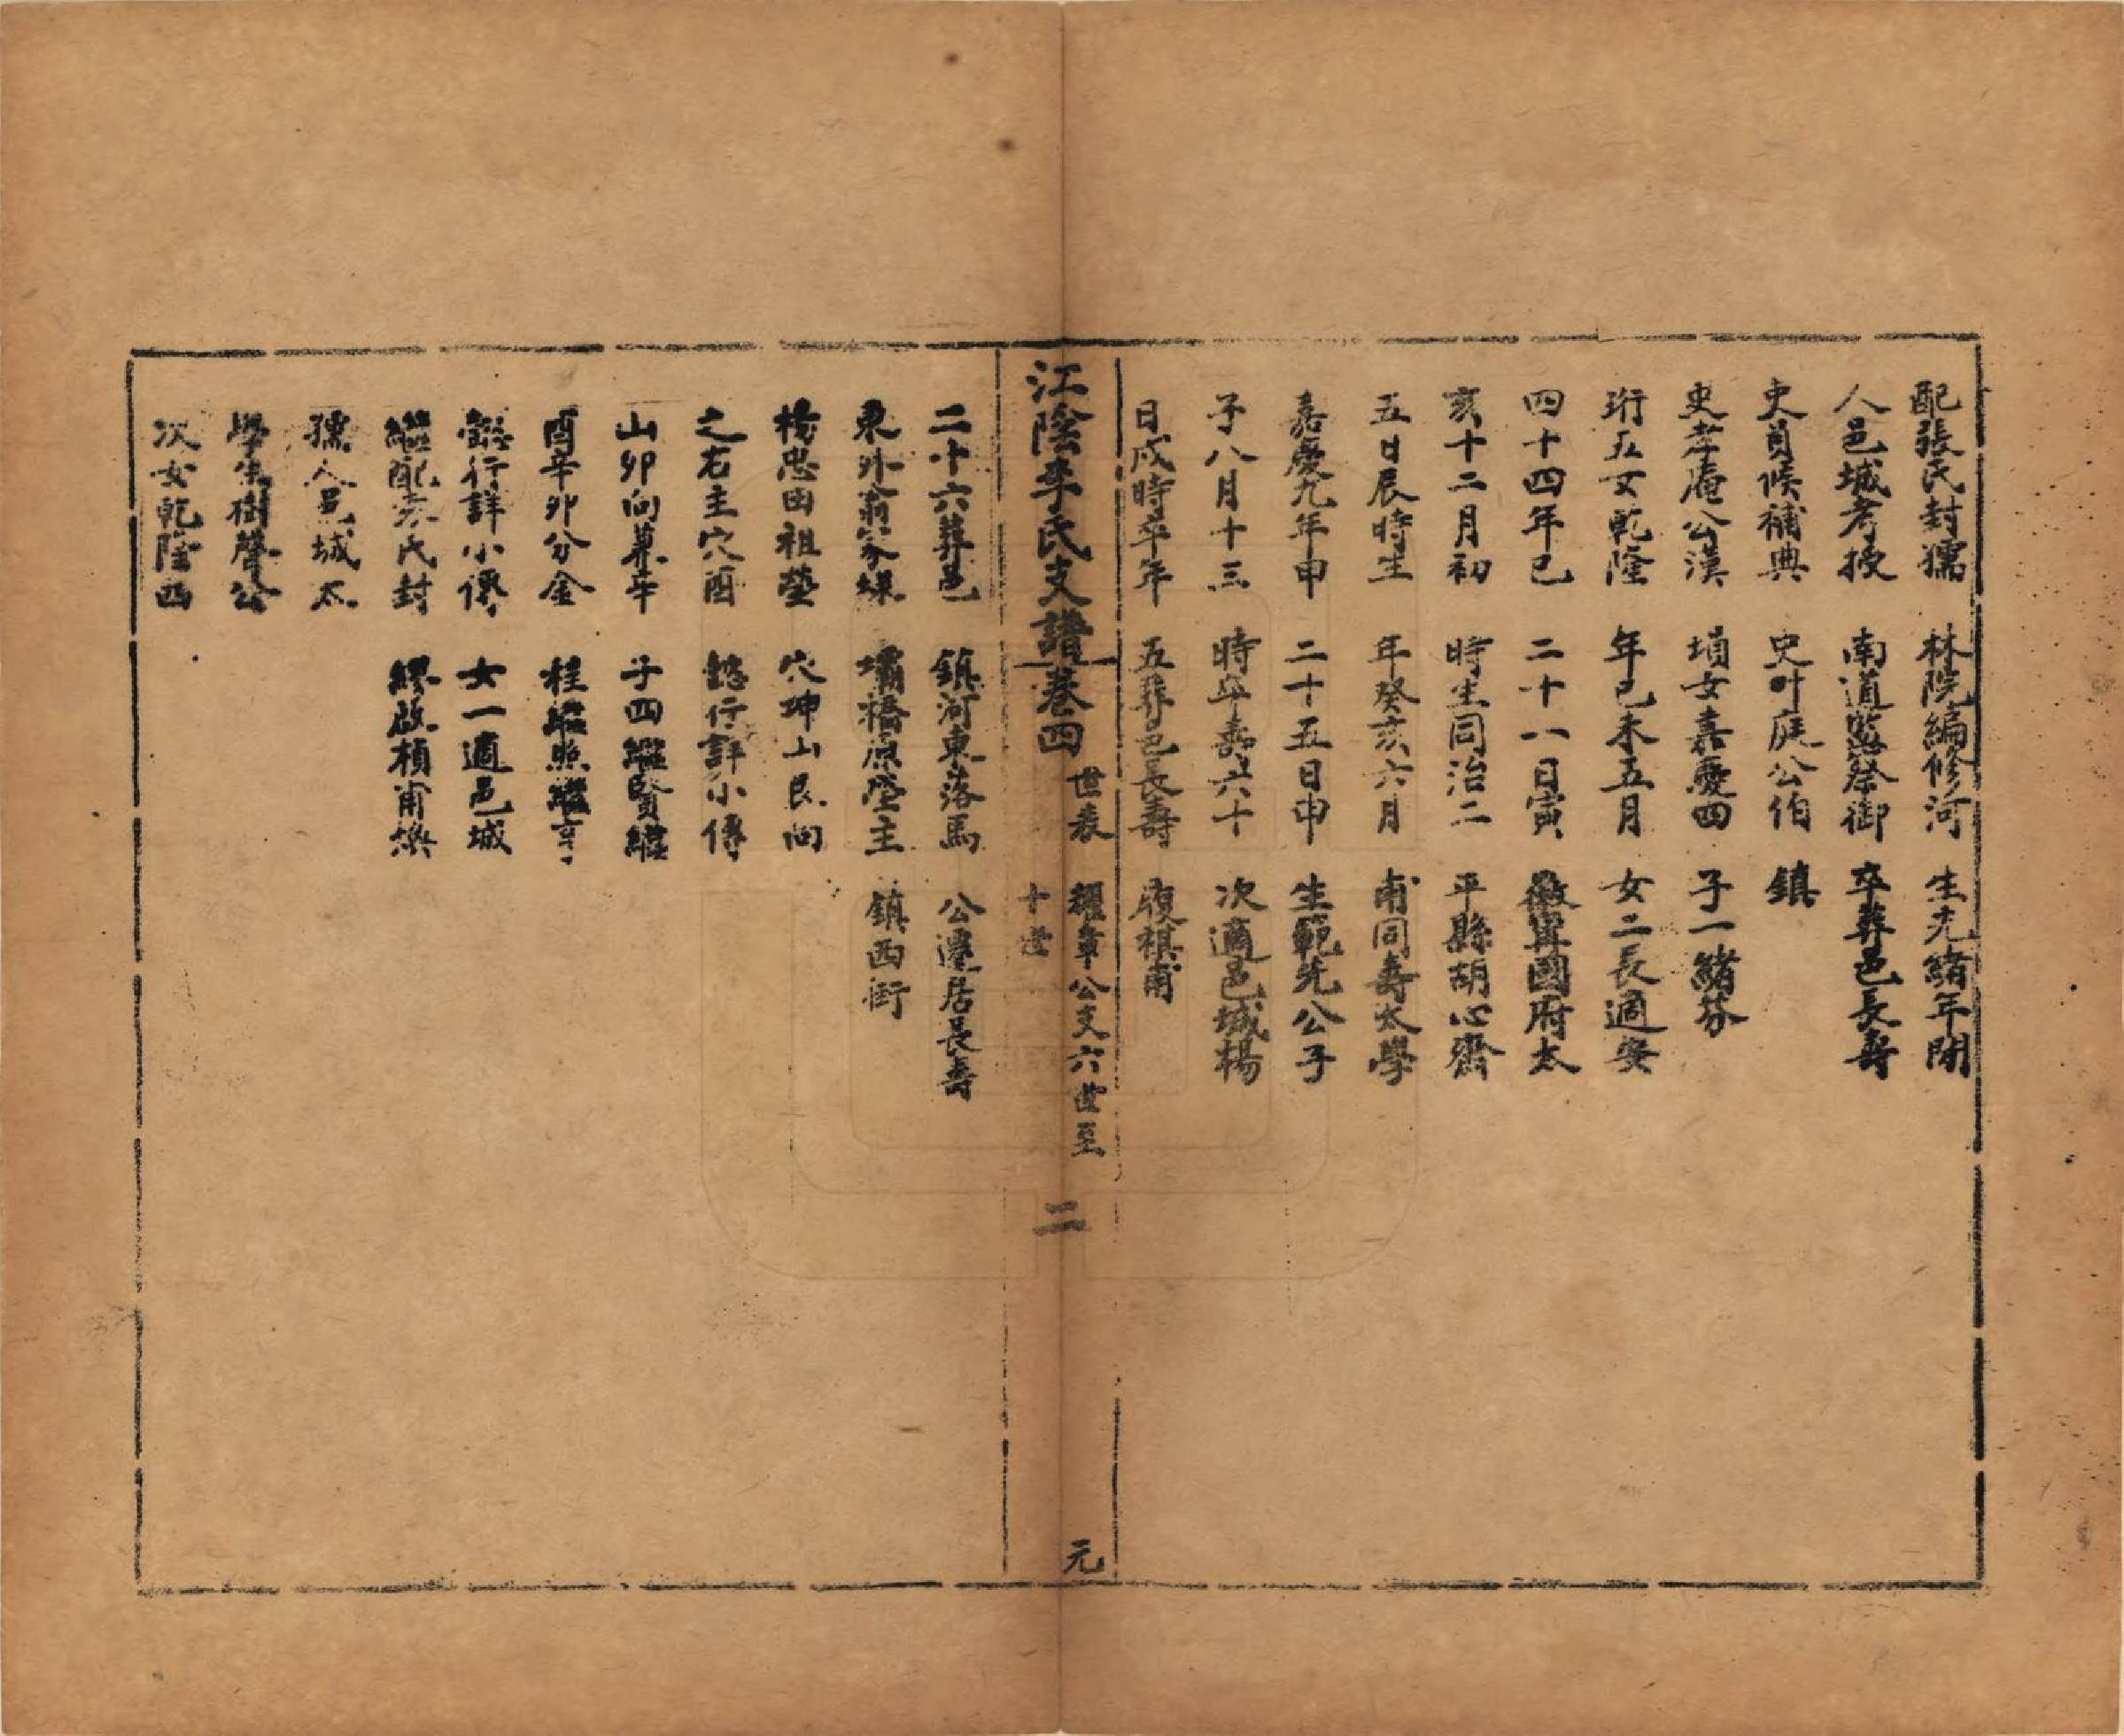 配張氏封孺
人邑城考授
吏員候補典
史孝庵公漢
珩五女乾隆
四十四年己
亥十二月初
五日辰時生
嘉慶九年申
子八月十三
日戌時卒年
二十六葬邑
東外翁家㙇
楊忠田祖塋
之右主穴酉
山卯向兼辛
酉辛卯分金
懿行詳小傳
繼配 氏封
孺人邑城太
學生樹聲公
次女乾隆四
林院編修河
南道監察御
史叶庭公伯
塤女嘉慶四
年己未五月
二十八日寅
時生同治二
年癸亥六月
二十五日申
時卒壽六十
五葬邑長壽
鎮河東落馬
壩橋原塋主
穴坤山艮向
懿行詳小傳
子四繼賢繼
桂繼照繼亨
女一適邑城
繆啟楨甫煥
生光緒年間
卒葬邑長壽
鎮
子一緒芬
女二長適安
徽寧國府太
平縣胡心齋
甫同壽太學
生範先公子
次適邑城楊
履祺甫
公遷居長壽
鎮西街
江陰李氏支譜卷四
世表
耀章公支六世至
十世
二
元